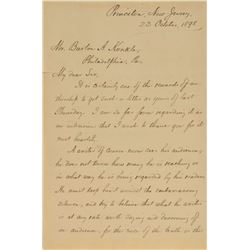 Princeton, New Jersey,
23 October, 1898
Mr. Burton A. Konkle,
Philadelphia, Pa.
My dear Sir,
It is certainly one of the rewards of au-
thorship to get such a letter as yours of last
Thursday. I am so far from regarding it as
an intrusion that I wish to thank you for it
most heartily.
A writer of course never sees his audience,
he does not know how many he is reaching or
in what way he is being regarded by his readers.
He must keep heart amidst the
silence, and try to believe that what he writes
is at any rate worth saying and deserving of
an audience, for the sake of the truth in the